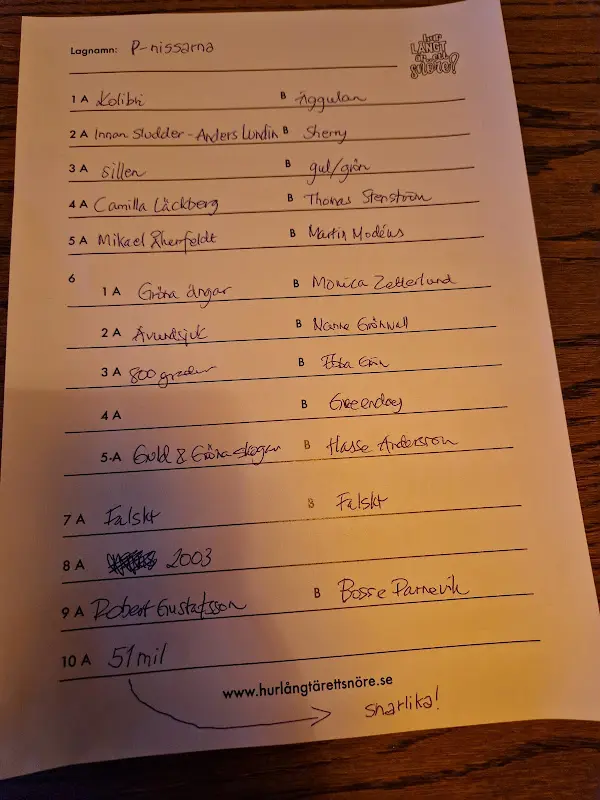 Lagnamn: P-nissarna
hur LÅNGT är ett snöre?
1 A Kolibri B Äggulan
2 A Innan Sludder - Anders Lundin B Sherry
3 A Sillen B gul/grön
4 A Camilla Läckberg B Thomas Stenström
5 A Mikael Åkerfeldt B Martin Modéus
6
1 A Gröna ängar B Monica Zetterlund
2 A Avundsjuk B Nanne Grönwall
3 A 800 grader B Ebba Grön
4 A B Greenday
5 A Guld & Gröna skogar B Hasse Andersson
7 A Falskt B Falskt
8 A 2003
9 A Robert Gustafsson B Bosse Parnevik
10 A 51 mil
www.hurlångtärettsnöre.se
snarlika!